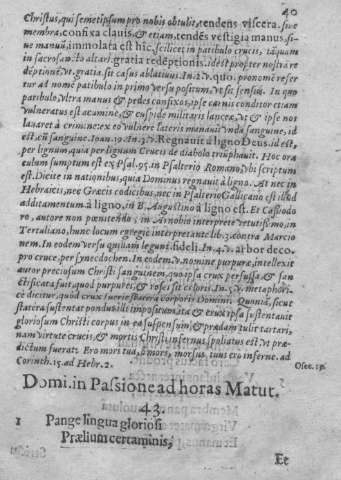 40
Christus, qui semetipsum pro nobis obtulit, tendens viscera. siue
membra, confixa clauis, & etiam, tendēs vestigia manus, si-
ue manuū, immolata est hîc, scilicet; in patibulo crucis, tāquam
in sacrosan. to altari. gratia redēptionis. idest propter nostrā re
dēptionē, vt, gratia, sit casus ablatiuus. In 2. v. quo: pronomē refer
tur ad nomē patibulo in primo versu positum, vt sit sensus. In quo
patibulo, vltra manus & pedes confixos, ipse carnis conditor etiam
vulneratus est acumine, & cuspide militaris lanceæ, vt & ipse nos
lauaret à crimine: ex eo vulnere lateris manauit vnda sanguine, id
est, cū sanguine. Ioan. 19. In 4. v. Regnauit à ligno Deus. id est,
per lignum, quia per lignum Crucis de diabolo triumphauit. Hoc ora
culum sumptum est ex Psal. 95. in Psalterio Romano, vbi scriptum
est. Dicite in nationibus, quia Dominus regnauit à ligno. At nec in
Hebraicis, nec Græcis codicibus, nec in Psalterio Gallicano est illud
additamentum à ligno, in B. Augustino à ligno est. Et Cassiodo
ro, autore non pœnitendo; in Arnobio interprete vetustissimo, in
Tertuliano, hunc locum egregiè interpretante lib. 3. contra Marcio
nem. In eodem versu quiuam legunt, fideli. In 4. v. arbor deco.
pro cruce, per synecdochen. In eodem. v. nomine purpuræ, intellexit
autor preciosum Christi sanguinem, quo ipsa crux perfussa, & san
ctificata fuit, quod purpuret, & roses sit coloris. In. 5. v. metaphori-
cè dicitur, quòd crux fuerit statera corporis Domini. Quoniā, sicut
statera sustentat pondus illi impositum, ita & crux ipsa sustentauit
gloriosum Christi corpus in ea suspensum; & prædam tulit tartari,
nam virtute crucis, & mortis Christi infernus spoliatus est vt præ-
dictum fuerat. Ero mors tua, ô mors, morsus tuus ero inferne. ad
Corinth. 15. ad Hebr. 2.
Osee. 13.
Domi. in Passione ad horas Matut.
43.
1 Pange lingua gloriosi
Prælium certaminis,
Et